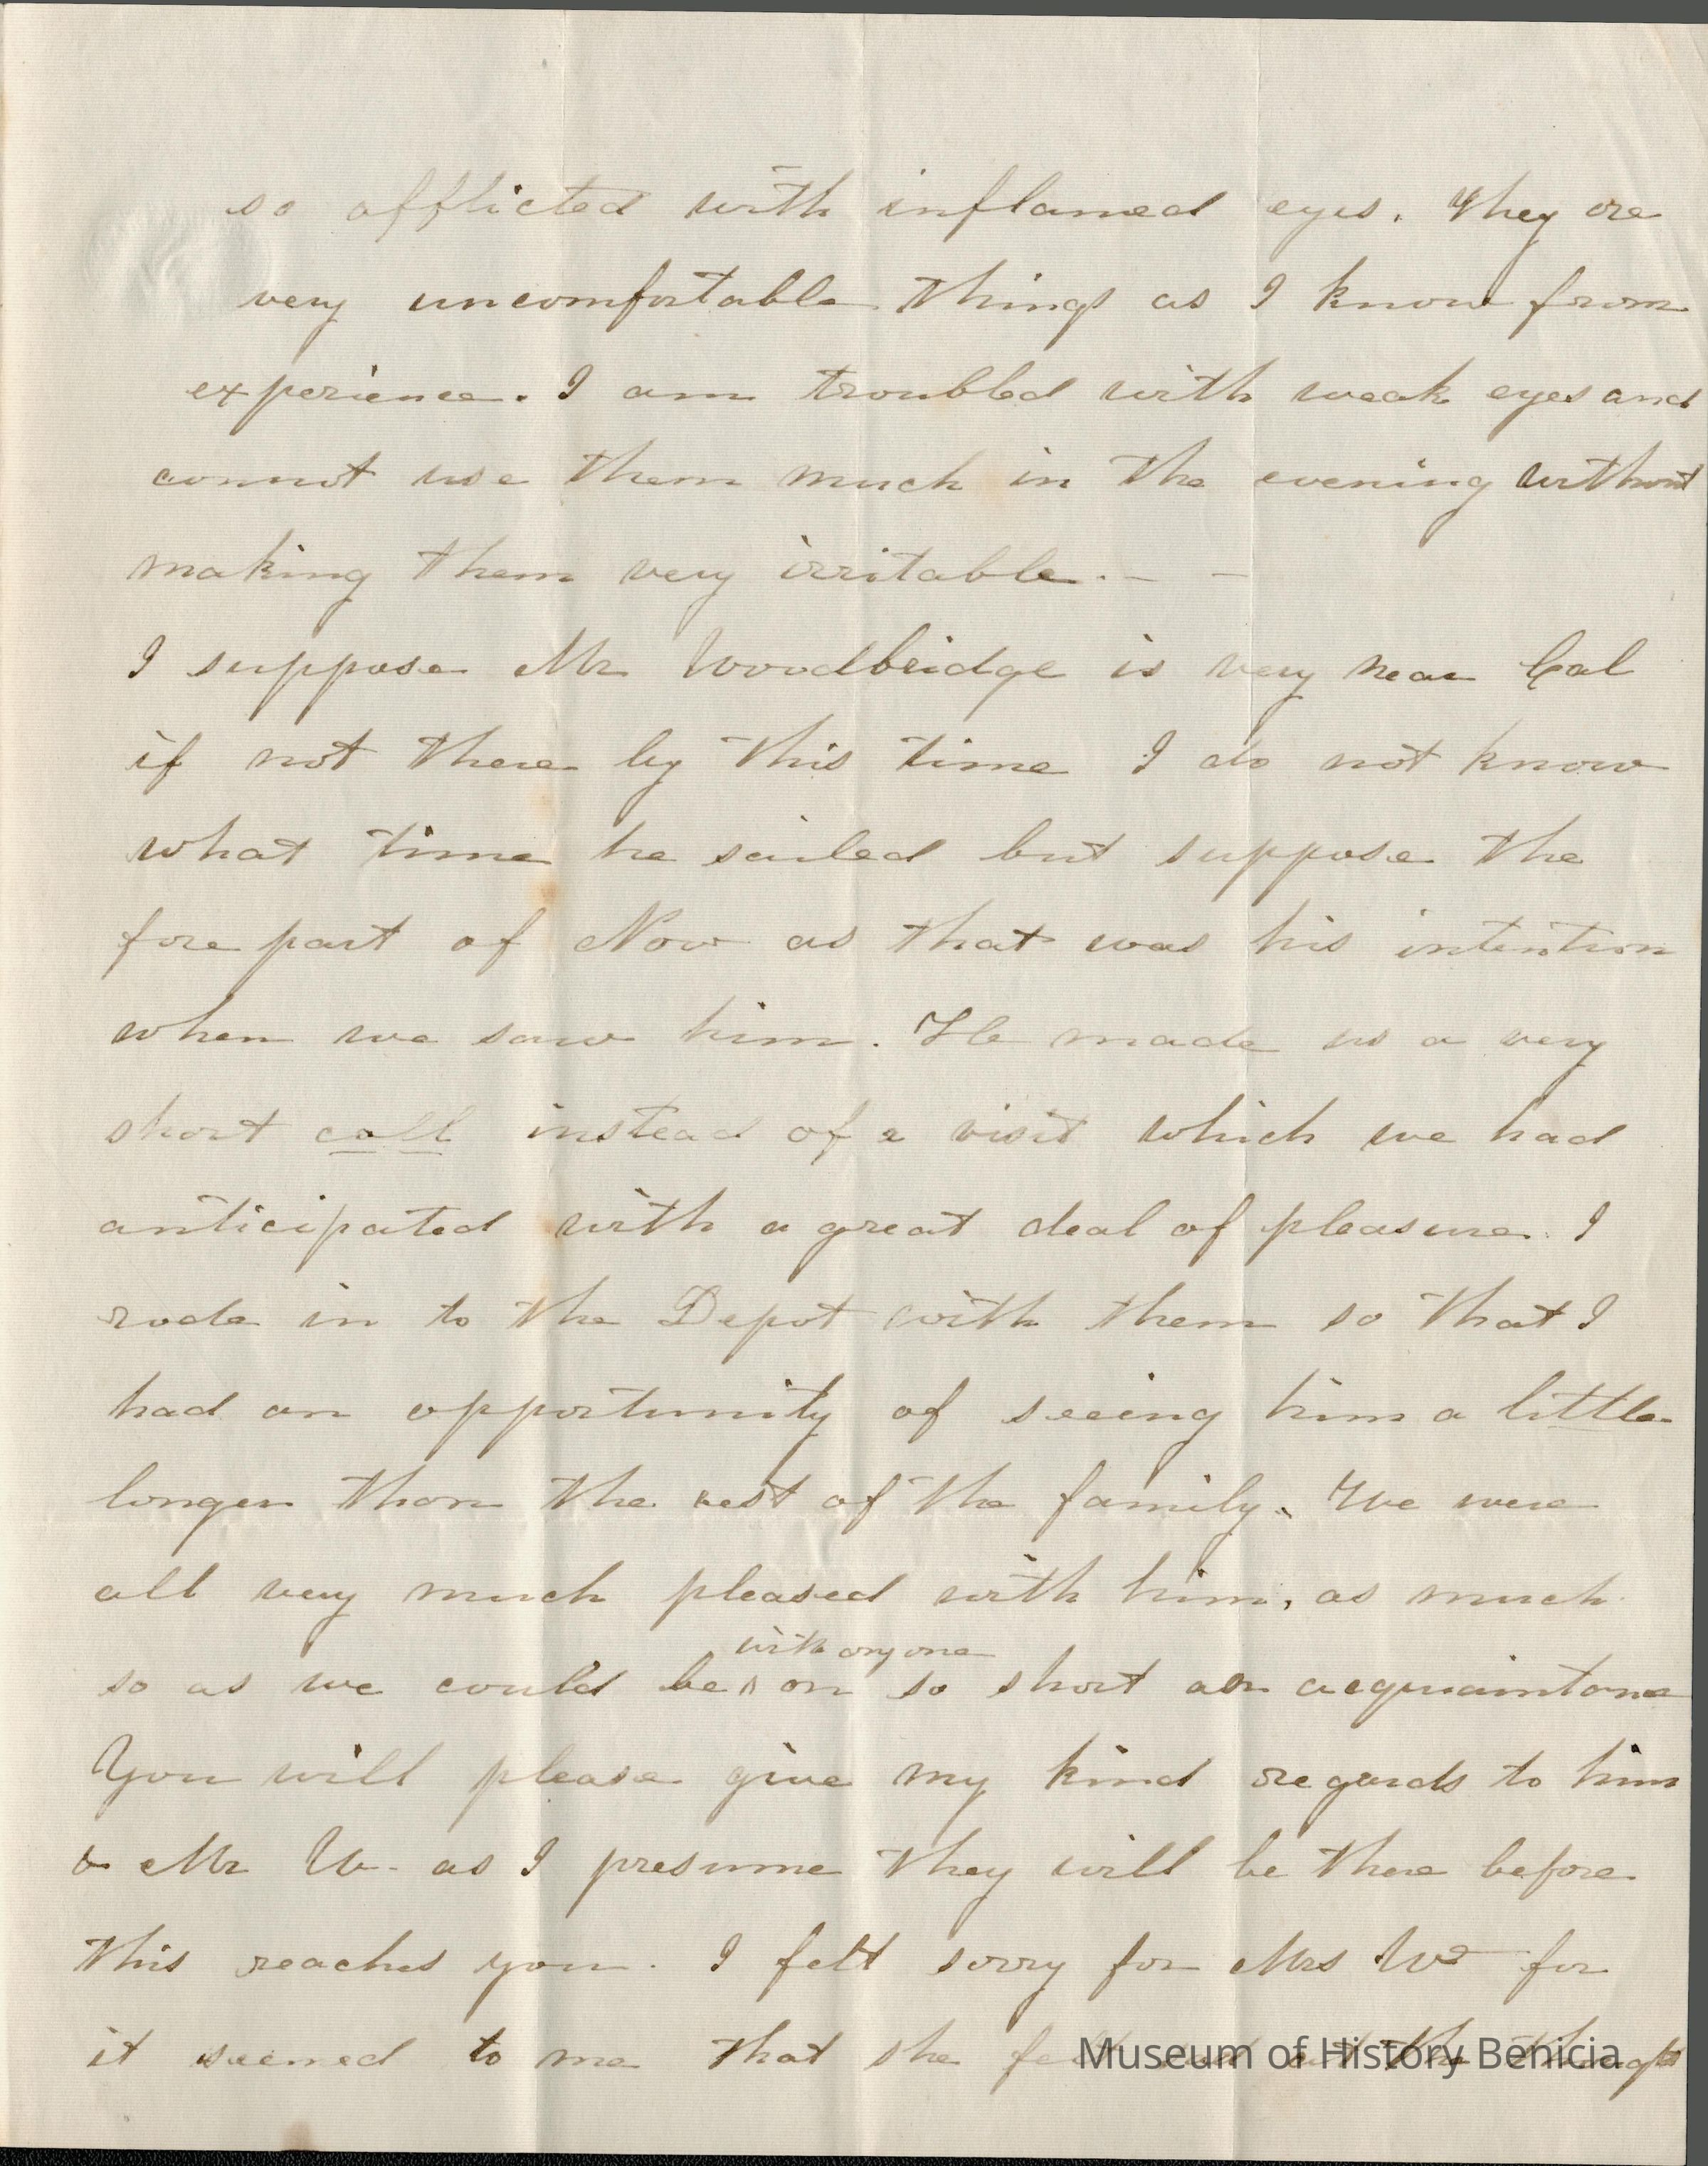 so afflicted with inflamed eyes. They are
very uncomfortable things as I know from
experience. I am troubled with weak eyes and
cannot use them much in the evening without
making them very irritable. — —
I suppose Mr Woodbridge is very near Cal
if not there by this time I do not know
what time he sailed but suppose the
fore part of Nov as that was his intention
when we saw him. He made us a very
short call instead of a visit which we had
anticipated with a great deal of pleasure. I
rode in to the Depot with them so that I
had an opportunity of seeing him a little
longer than the rest of the family. We were
all very much pleased with him, as much
with any one
so as we could be ^ on so short an acquaintance
You will please give my kind regards to him
& Mr W. as I presume they will be there before
this reaches you. I felt sorry for Mrs W for
it seemed to me that she felt at the
Museum of History Benicia